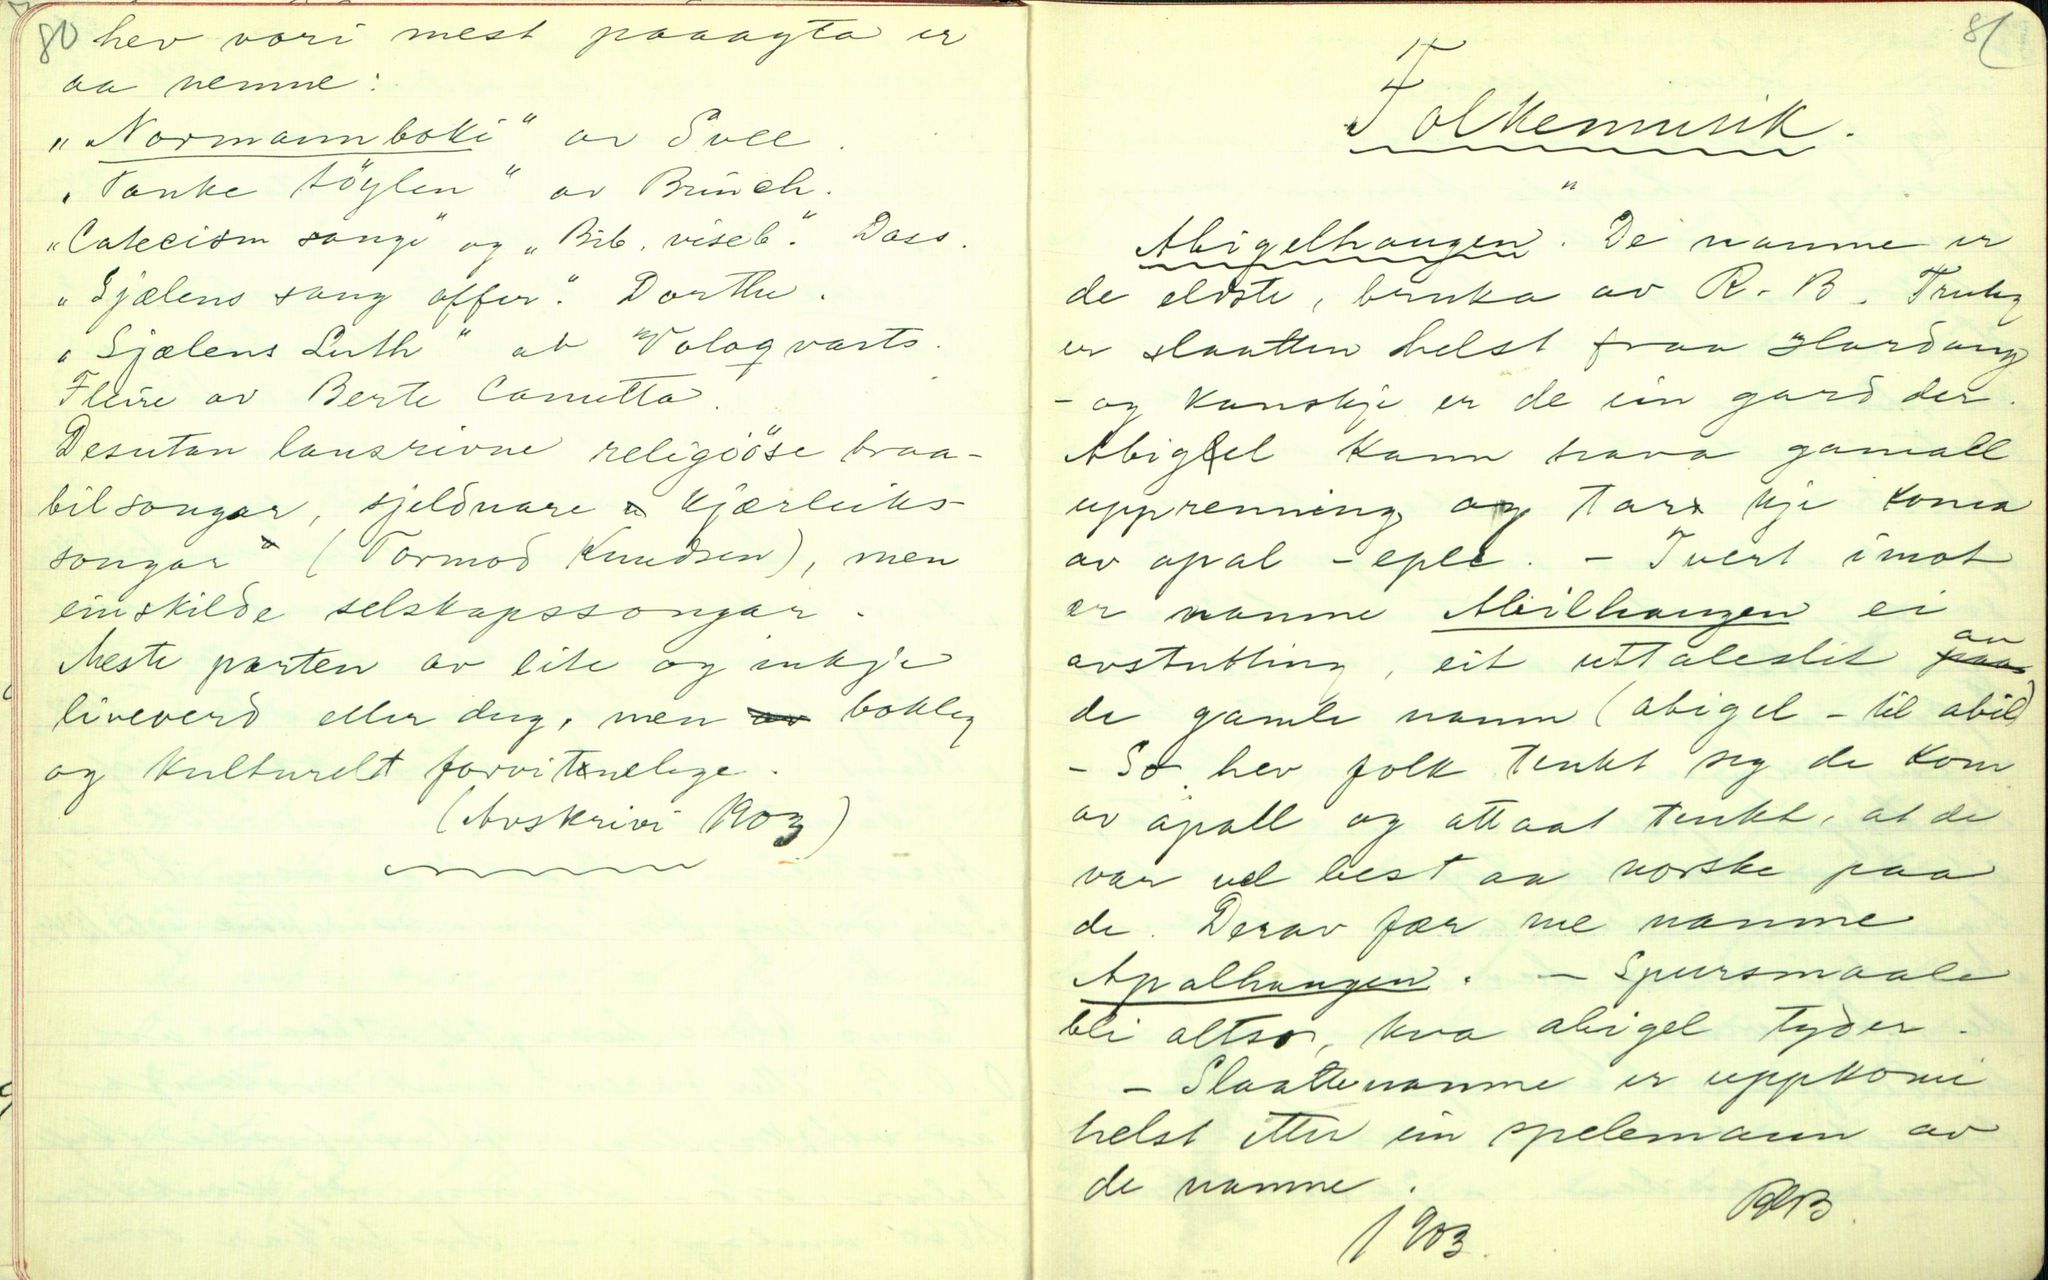 80 hev vori mest paaagta er
aa nemne:
„Normannboki" av Svee.
„Tanke töylen" av Brunch.
„Catecism songe" og „Bib. viseb." Dass.
„Sjælens sang offer". Dorthe.
„Sjælens Luth" at Wologvarts.
Fleire av Berte Canutta.
Desutan lausrivne religiööse braa-
bilsongar, sjeldnare kjærleiks-
songar (Tormod Knudsen), men
einskilde selskapssongar.
Meste parten av lite og inkje
liveverd eller dug, men bokleg
og kulturelt forvitnelege.
(Avskrivi 1903)
81
Folkemusik.
"
Abigelhaugen. De namne er
de eldste, bruka av R. B. Truleg
er slaatten helst fraa Hardang
- og kanskje er de ein gard der.
Abigel kann hava gamall
upprenning og tar kje koma
av apal - eple. - Tvert imot
er namne Abilhaugen ei
avstutting, eit uttaleslit av
de gamle namn (abigel - til abil)
- So hev folk tenkt seg de kom
av apall og attaat tenkt, at de
var vel best aa norske paa
de. Derav fær me namne
Apalhaugen. - Spursmaale
bli altso, kva abigel tyder.
- Slaattenamne er uppkome
helst etter ein spelemann av
de namne.
1903. RB.